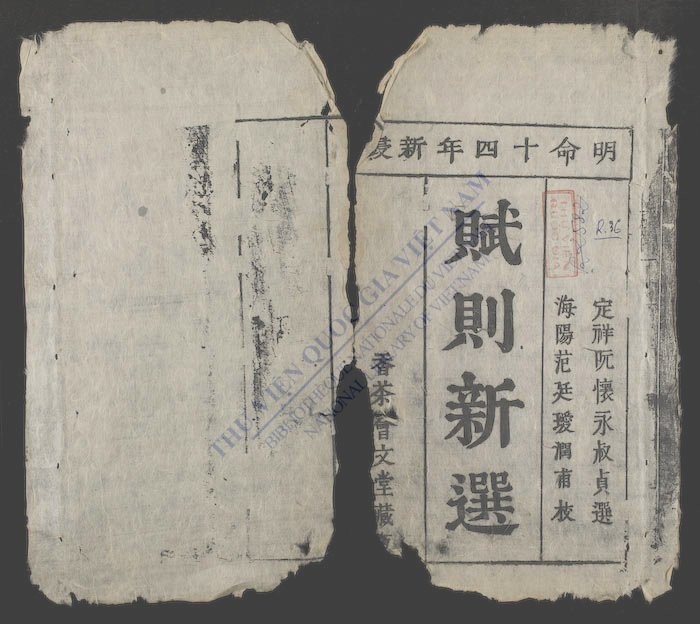 明命十四年新
R.36
定祥阮懷永叔貞選
海陽范廷璦潤甫校
賦則新選
香茶會文堂藏
THƯ VIỆN QUỐC GIA VIỆT NAM
BIBLIOTHÈQUE NATIONALE DU VIETNAM
NATIONAL LIBRARY OF VIETNAM